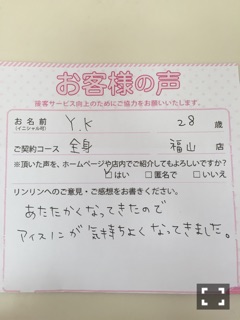 お客様の声
接客サービス向上のためにご協力をお願いいたします。
お名前
(イニシャル可)
Y.K
28 歳
ご契約コース
全身
福山 店
※頂いた声を、ホームページや店内でご紹介してもよろしいですか?
はい □匿名で □いいえ
リンリンへのご意見・ご感想をお書きください。
あたたかくなってきたので
アイスノンが気持ちよくなってきました。